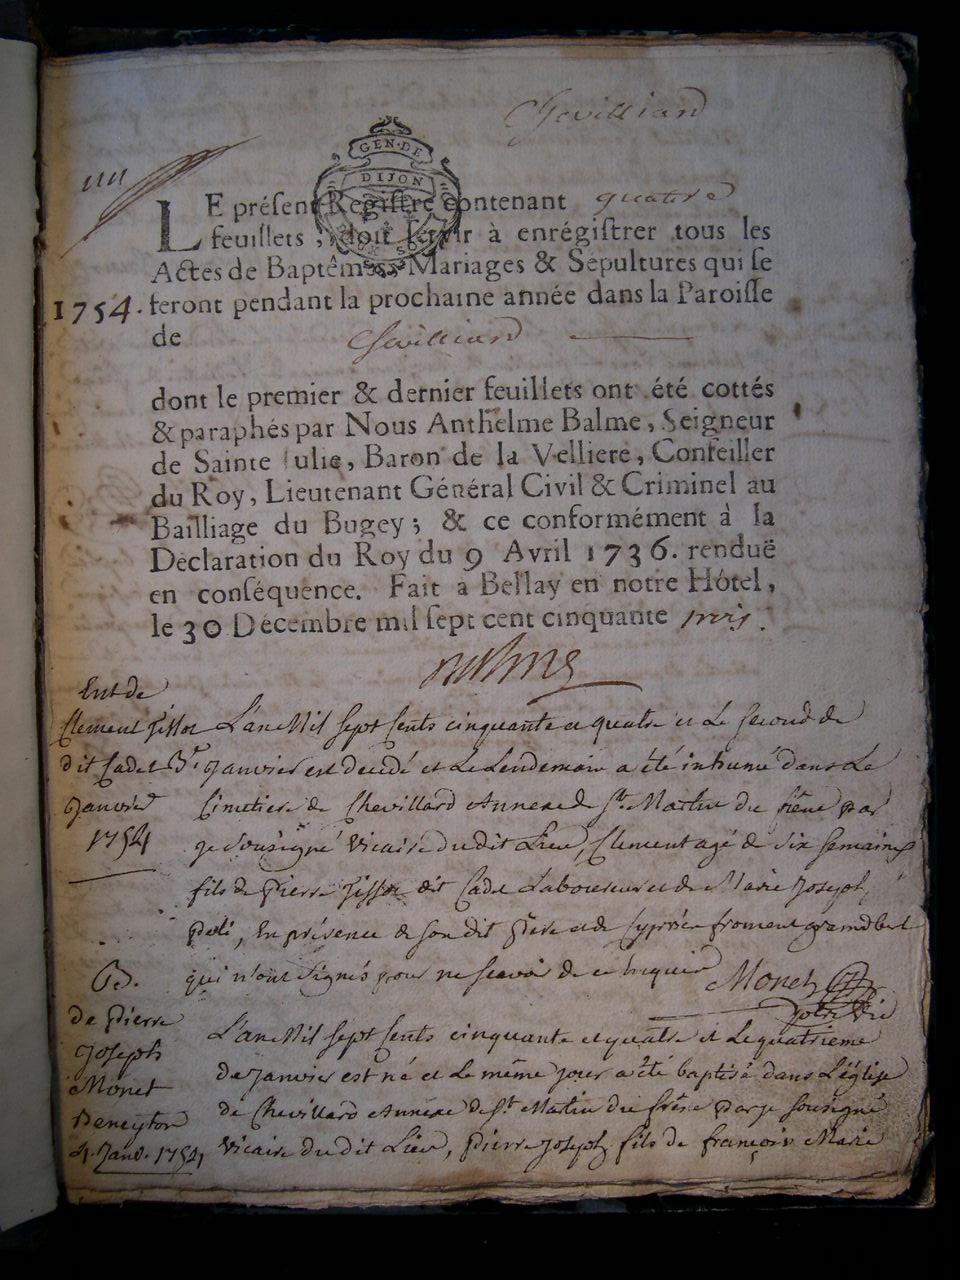 Chevilliard
GEN·DE
DIJON
LE préſent Regiſtre contenant quatre
feuillets, doit ſervir à enrégiſtrer tous les
Actes de Baptêmes, Mariages & Sépultures qui ſe
1754. feront pendant la prochaine année dans la Paroiſſe
de Chevilliard
dont le premier & dernier feuillets ont été cottés
& paraphés par Nous Anthelme Balme, Seigneur
de Sainte Julie, Baron de la Velliere, Conſeiller
du Roy, Lieutenant Général Civil & Criminel au
Bailliage du Bugey; & ce conformément à la
Déclaration du Roy du 9 Avril 1736. renduë
en conſéquence. Fait à Bellay en notre Hôtel,
le 30 Décembre mil ſept cent cinquante trois.
Balme
Ent de
Clement Tissot
dit Cadet
Janvier
1754
L'an Mil sept Cents cinquante et quatre et Le second de
Janvier est decedé et Le Lendemain a été inhumé dans Le
Cimetiere de Chevillard Annexe de St. Martin du frêne par
je sousigné Vicaire dudit Lieu, Clement agé de six semaines
fils de Pierre Tissot dit Cadet Laboureur et de Marie Joseph
En présence de son dit Père et de Cyprien froment
qui n'ont signés pour ne scavoir de ce enquis Monet
B.
de Pierre
Joseph
Monet
Deneyton
4. Janv. 1754
L'an Mil sept Cents cinquante et quatre et Le quatrieme
de Janvier est né et Le même jour a été baptisé dans L'église
de Chevillard Annexe de St. Martin du frêne par je sousigné
Vicaire dudit Lieu, Pierre Joseph fils de françois Marie